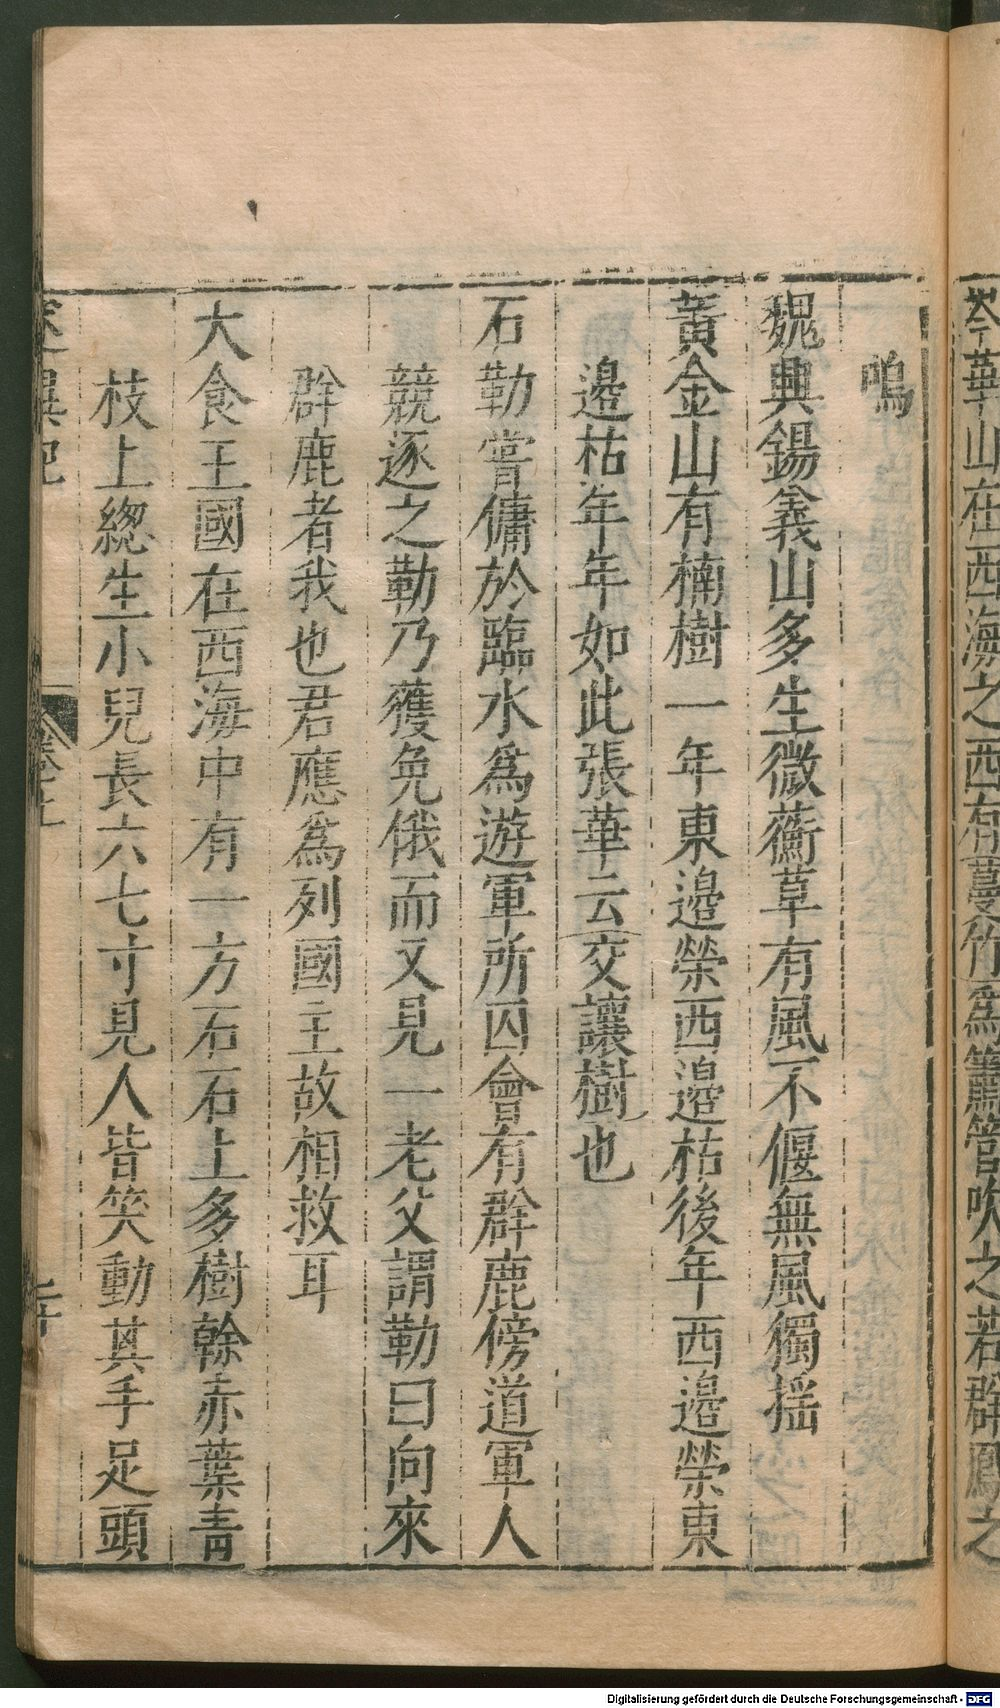 岑華山在西海之西有䔲竹爲簫管吹之若群鳳之
鳴
魏興錫義山多生微蘅草有風不偃無風獨揺
黃金山有楠樹一年東邉榮西邉枯後年西邉榮東
邉枯年年如此張華云交讓樹也
石勒嘗傭於臨水爲遊軍所囚會有群鹿傍道軍人
競逐之勒乃獲免俄而又見一老父謂勒曰向來
群鹿者我也君應爲列國主故相救耳
大食王國在西海中有一方石石上多樹幹赤葉青
枝上緫生小兒長六七寸見人皆笑動其手足頭
述異記 卷上 二十
Digitalisierung gefördert durch die Deutsche Forschungsgemeinschaft - DFG